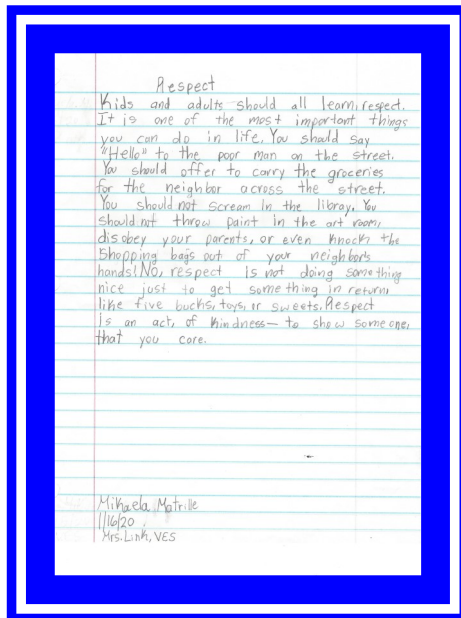 Respect
Kids and adults should all learn, respect.
It is one of the most important things
you can do in life. You should say
"Hello" to the poor man on the street.
You should offer to carry the groceries
for the neighbor across the street.
You should not scream in the libray. You
should not throw paint in the art room,
disobey your parents, or even knock the
shopping bags out of your neighbors
hands! No, respect is not doing something
nice just to get something in return,
like five bucks, toys, or sweets. Respect
is an act, of kindness— to show someone,
that you care.
Mikaela Matrille
1/16/20
Mrs. Link, VES